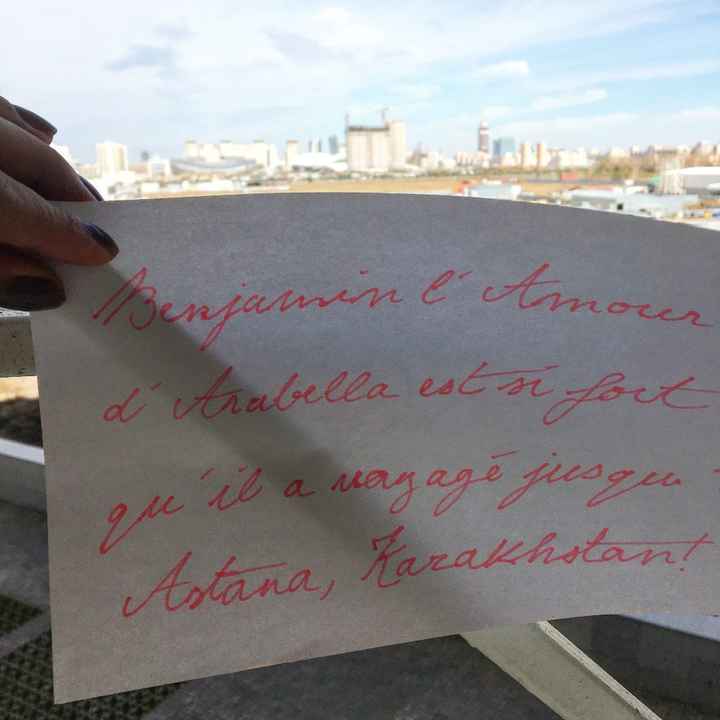 Benjamin l'Amour
d'Arabella est si fort
qu'il a voyagé jusqu'
Astana, Karakhstan!